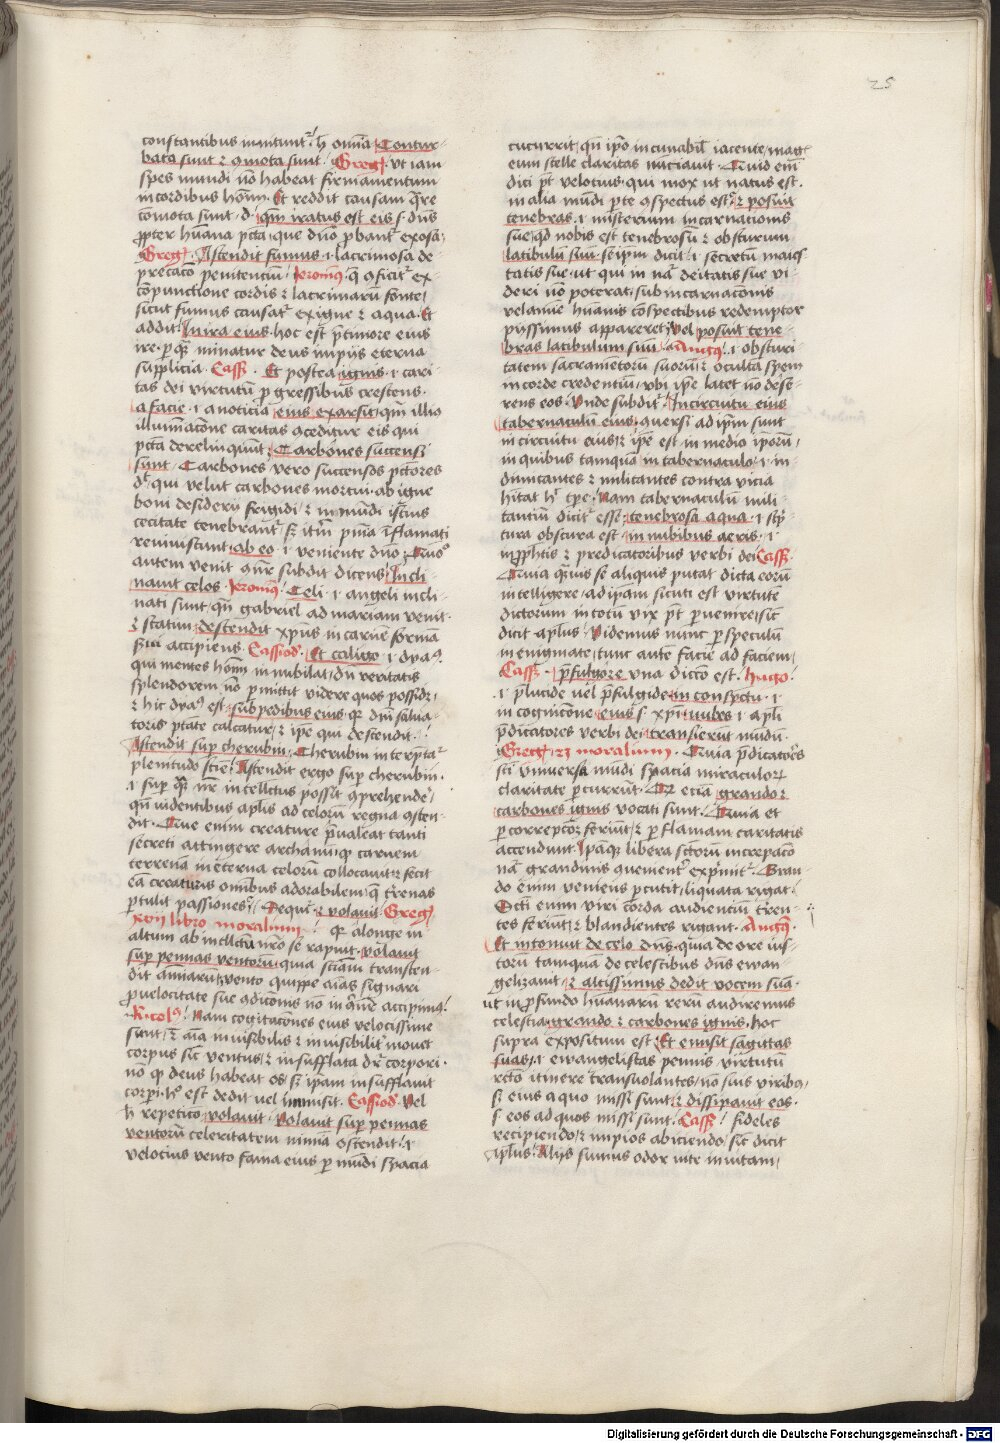 25
constantibus innitunt᷑ h̄ omīa Contur-
bata sunt ⁊ ꝯmota sunt Greg᷑ vt iam
spes mundi nō habeat firmamentum
in cordibus hōīm Et reddit causam quare
cōmota sunt d. qm̄ iratus est eis s. dn̄s
ꝓpter humana pctā que dn̄o
Greg᷑ Ascendit fumus .i. lacrimosa de
precacō penitenciū Jeronī᷒ qꝫ ꝯficit᷑ ex
cōpunctione cordis ⁊ lacrimarū fonte
sicut fumus causat᷑ ex igne ⁊ aqua Et
addit In ira eius hoc est in timore eius
ire per quā minatur deus impijs eterna
supplicia Cass᷑ Et postea ignis .i. cari-
tas dei virtutū ꝓgressibus crescens
a facie .i. a noticia eius exarsit qm̄ illō
illuminatōne caritas ꝯceditur eis qui
pctā derelinquūt Carbones succensi
sunt Carbones vero succensos pctores
dr̄ qui velut carbones mortui ab igne
boni desiderij frigidi ⁊ in mūdi istius
cecitate tenebrant᷑ sꝫ itm̄ pn̄ia inflamati
reuiuiscunt ab eo .i. veniente dn̄o Quō
autem venit qn̄r subdit dicens Incli-
nauit celos Jeronī᷒ Celi .i. angeli incli-
nati sunt qn̄ gabriel ad mariam venit
⁊ statim descendit xp̄us in carnē formā
serui accipiens Cassiod᷑ Et caligo .i. dya᷒
qui mentes hōīm innubilat dū veritatis
splendorem nō permittit videre quos possidꝫ
⁊ hic dya᷒ est sub pedibus eius qꝫ dn̄i salua-
toris ptāte calcatur ⁊ ipe qui descendit
Ascendit sup cherubin Cherubin interp̄tat᷑
plenitudo scie Ascendit ergo sup cherubin
.i. sup qm̄ nr̄ intellectus possit ꝯprehendere
qn̄ videntibus aplis ad celorū regna ꝯscen-
dit Que enim creature p̄ualeat tanti
secreti attingere archanū qꝫ carnem
terrenā in eterna celorū collocauit ⁊ fecit
eā creaturis omībus adorabilem qꝫ t̄renas
pertulit passiones Sequit᷑ ⁊ volauit Greg᷑
xvij libro moralium qꝫ a longe in
altum ab intellectu nr̄o se rapuit Volauit
sup pennas ventorū quia sciam̄ transcen-
dit animarū vento quippe aīas signari
pro velocitate sue ꝯdicionis nō inquene accipim᷒
Nicol᷒ Nam cogitacōnes eius velocissime
sunt ⁊ aīa inuisibilis ⁊ inuisibilit᷑ mouet
corpus sic ventus ⁊ insufflata dr̄ corpori
nō qꝫ deus habeat os sꝫ ipam insufflauit
corpi hoc est dedit vel immisit Cassiod᷑ Vel
h̄ repetito volauit Volauit sup pennas
ventorū celeritatem nimiā ostendit .i.
velocius vento fama eius per mūdi spacia
cucurrit qn̄ ipō in cunabul᷑ iacente mag-
eum stelle claritas nūciauit Quid eni᷑
dici pt̄ velocius qui mox vt natus est
in alia mūdi pte ꝯspectus est ⁊ posuit
tenebras .i. misterium incarnacionis
sue qd nobis est tenebrosū ⁊ obscurum
latibulū suū seipm̄ dicit .i. secretū maies-
tatis sue ut qui in nā deitatis sue vi-
deri nō poterat sub incarnacōnis
velamine humanis cōspectibus redemptor
pijssimus appareret Vel posuit tene-
bras latibulum suū Aug᷒ .i. obscuri-
tatem sacramētorū suorū ⁊ occultā spem
in corde credentiū vbi ipe latet nō dese-
rens eos Vnde subdit᷑ In circuitu eius
tabernaculū eius quersi ad ipm̄ sunt
in circuitu eius ⁊ ipe est in medio ipsorū
in quibus tamquā in tabernaculo .i. in
dimicantes ⁊ militantes contra vicia
hītat h᷑ tpe Nam tabernaculū mili-
tantiū dicit᷑ esse tenebrosa aqua .i. scrip-
tura obscura est in nubibus aeris .i.
in ꝓphetis ⁊ predicatoribus verbi dei Cass᷑
Quia quīuis se aliquis putat dicta eorū
intelligere ad ipam sicuti est virtutē
dictorum in totū vix pt̄ peruenire sic
dicit aplus Videmus nunc per speculū
in enigmate tunc autē facie ad faciem
Cass᷑ p̄fulgore vna dictio est hugo
.i. p̄lucide uel p̄fulgide in conspectu .i.
in cognicōne eius s. xp̄i nubes .i. apli
p̄dicatores verbi dei transierūt mūdū
Greg᷑ moralium Quia p̄dicatores
scī vniuersa mūdi spacia miraculorꝫ
claritate percurrūt Qꝫ eciā grando ⁊
carbones ignis vocati sunt Quia et
per correpcōꝫ feriūt ⁊ per flamam caritatis
accendunt Ipsaqꝫ libera sctorū increpacō
nā grandinis ꝯuenient᷑ exprimit᷑ Gran-
do enim veniens percutit liquata rigat
Scti enim viri corda audienciū t̄ren-
tes feriūt ⁊ blandientes rigant Aug᷒
Et intonuit de celo dn̄s quia de ore ius-
torū tamquam de celestibus dn̄s ewan-
gelizauit ⁊ altissimus dedit vocem suā
ut in profundo humanarū rerū audiremus
celestia grando ⁊ carbones ignis hoc
supra expositum est Et emisit sagittas
suas .i. ewangelistas pennis virtutū
recto itinere transuolantes nō suis viribꝫ
sꝫ eius a quo missi sunt ⁊ dissipauit eos
s. eos ad quos missi sunt Cass᷑ fideles
recipiendo ⁊ impios abiciendo sic dicit
aplus Alijs sumus odor vite in vitam
Digitalisierung gefördert durch die Deutsche Forschungsgemeinschaft - DFG